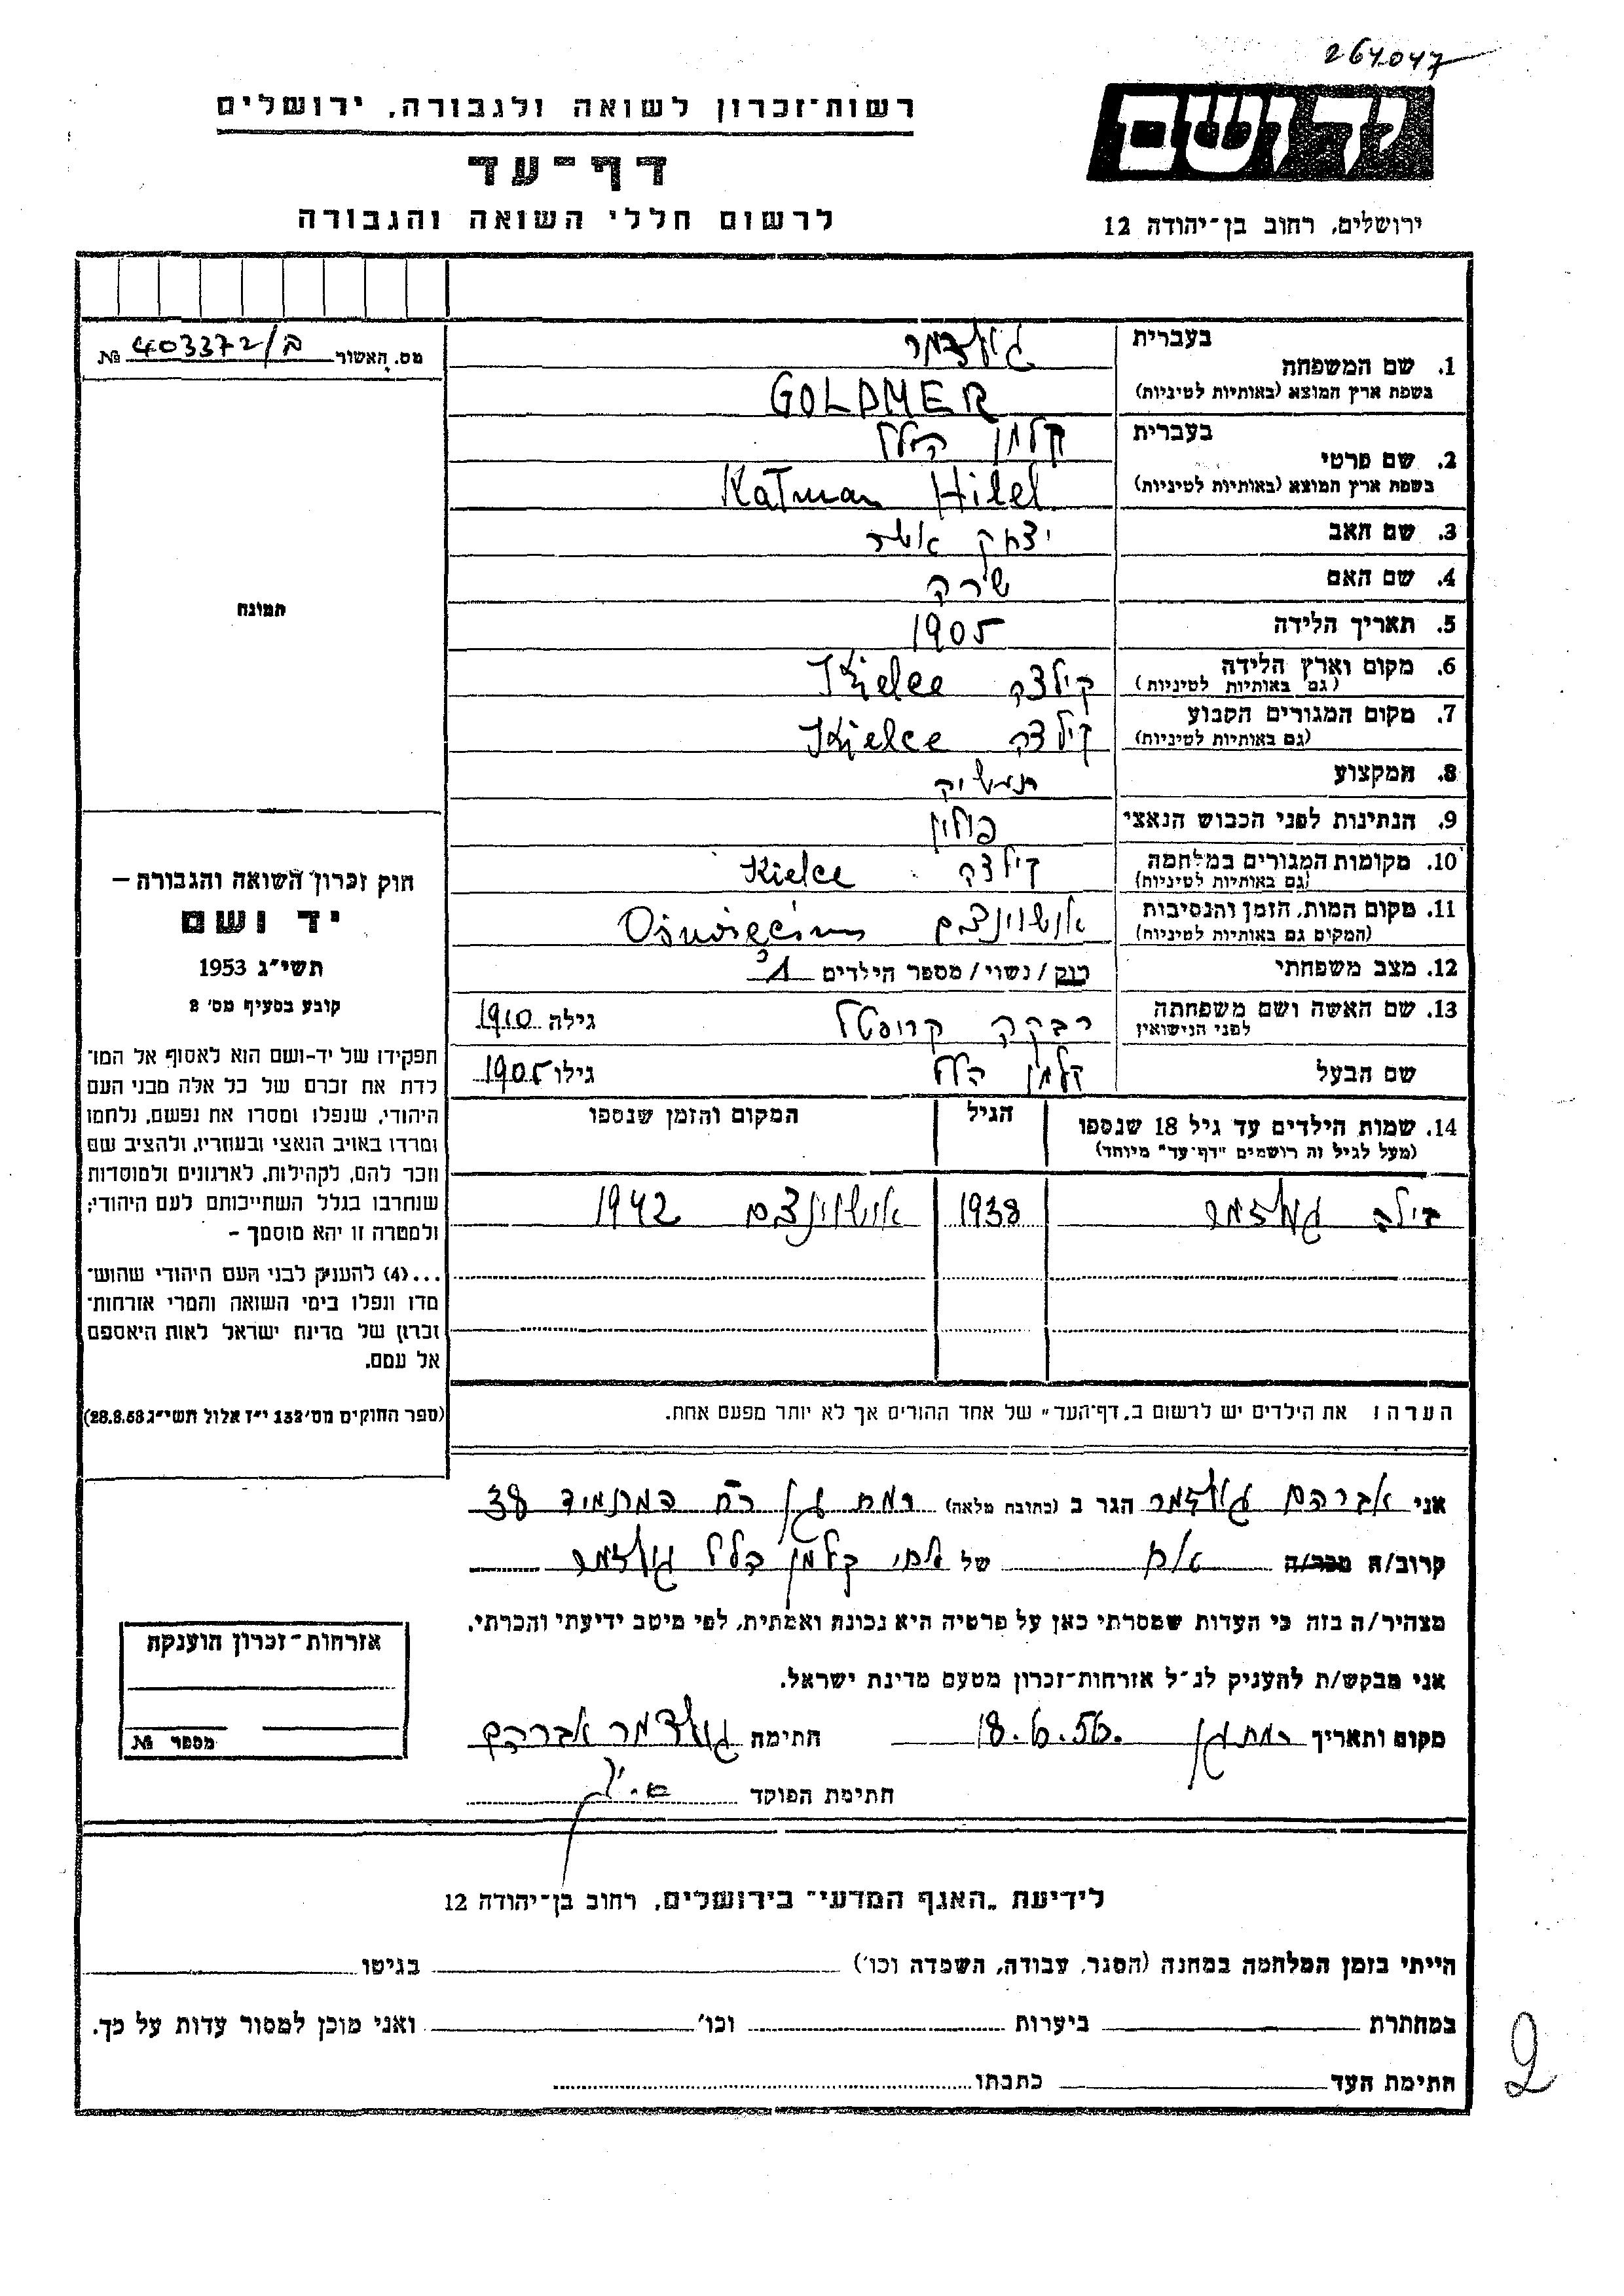 264047
רשות־זכרון לשואה ולגבורה, ירושלים
יד ושם
דף־עד
לרשום חללי השואה והגבורה
ירושלים, רחוב בן־יהודה 12
מס. האשור 403372/ב №
תמונה
חוק זכרון השואה והגבורה –
יד ושם
תשי״ג 1953
קובע בסעיף מס׳ 2
תפקידו של יד-ושם הוא לאסוף אל המו־
לדת את זכרם של כל אלה מבני העם
היהודי, שנפלו ומסרו את נפשם, נלחמו
ומרדו באויב הנאצי ובעוזריו, ולהציב שם
וזכר להם, לקהילות, לארגונים ולמוסדות
שנחרבו בגלל השתייכותם לעם היהודי;
ולמטרה זו יהא מוסמך –
...(4) להעניק לבני העם היהודי שהוש־
מדו ונפלו בימי השואה והמרי אזרחות־
זכרון של מדינת ישראל לאות היאספם
אל עמם.
(ספר החוקים מס׳ 132 י״ז אלול תשי״ג 28.8.53)
1. שם המשפחה
בעברית גולדמר
בשפת ארץ המוצא (באותיות לטיניות) GOLDMER
2. שם פרטי
בעברית קלמן הלל
בשפת ארץ המוצא (באותיות לטיניות) Kalman Hilel
3. שם האב יצחק אשר
4. שם האם שרה
5. תאריך הלידה 1905
6. מקום וארץ הלידה קילצה Kielce
(גם באותיות לטיניות)
7. מקום המגורים הקבוע קילצה Kielce
(גם באותיות לטיניות)
8. המקצוע
9. הנתינות לפני הכבוש הנאצי פולין
10. מקומות המגורים במלחמה קילצה Kielce
(גם באותיות לטיניות)
11. מקום המות, הזמן והנסיבות אושוינצים Oświęcim
(המקום גם באותיות לטיניות)
12. מצב משפחתי רווק / נשוי / מספר הילדים 1
13. שם האשה ושם משפחתה רבקה גילה 1910
לפני הנישואין
שם הבעל קלמן הלל גילו 1905
14. שמות הילדים עד גיל 18 שנספו הגיל המקום והזמן שנספו
(מעל לגיל זה רושמים "דף־עד" מיוחד)
גולדמר 1938 אושוינצים 1942
הערה: את הילדים יש לרשום ב„דף־העד" של אחד ההורים אך לא יותר מפעם אחת.
אני אברהם גולדמר הגר ב (כתובת מלאה) רמת גן רח המתמיד 38
קרוב/ה מכר/ה אח של אחי קלמן הלל גולדמר
מצהיר/ה בזה כי העדות שמסרתי כאן על פרטיה היא נכונה ואמתית, לפי מיטב ידיעתי והכרתי.
אני מבקש/ת להעניק לנ״ל אזרחות־זכרון מטעם מדינת ישראל.
מקום ותאריך רמת גן 18.6.56. חתימה גולדמר אברהם
חתימת הפוקד
אזרחות־זכרון הוענקה
מספר №
לידיעת „האגף המדעי" בירושלים, רחוב בן־יהודה 12
הייתי בזמן המלחמה במחנה (הסגר, עבודה, השמדה וכו׳) בגיטו
במחתרת ביערות וכו׳ ואני מוכן למסור עדות על כך.
חתימת העד כתבתו
2